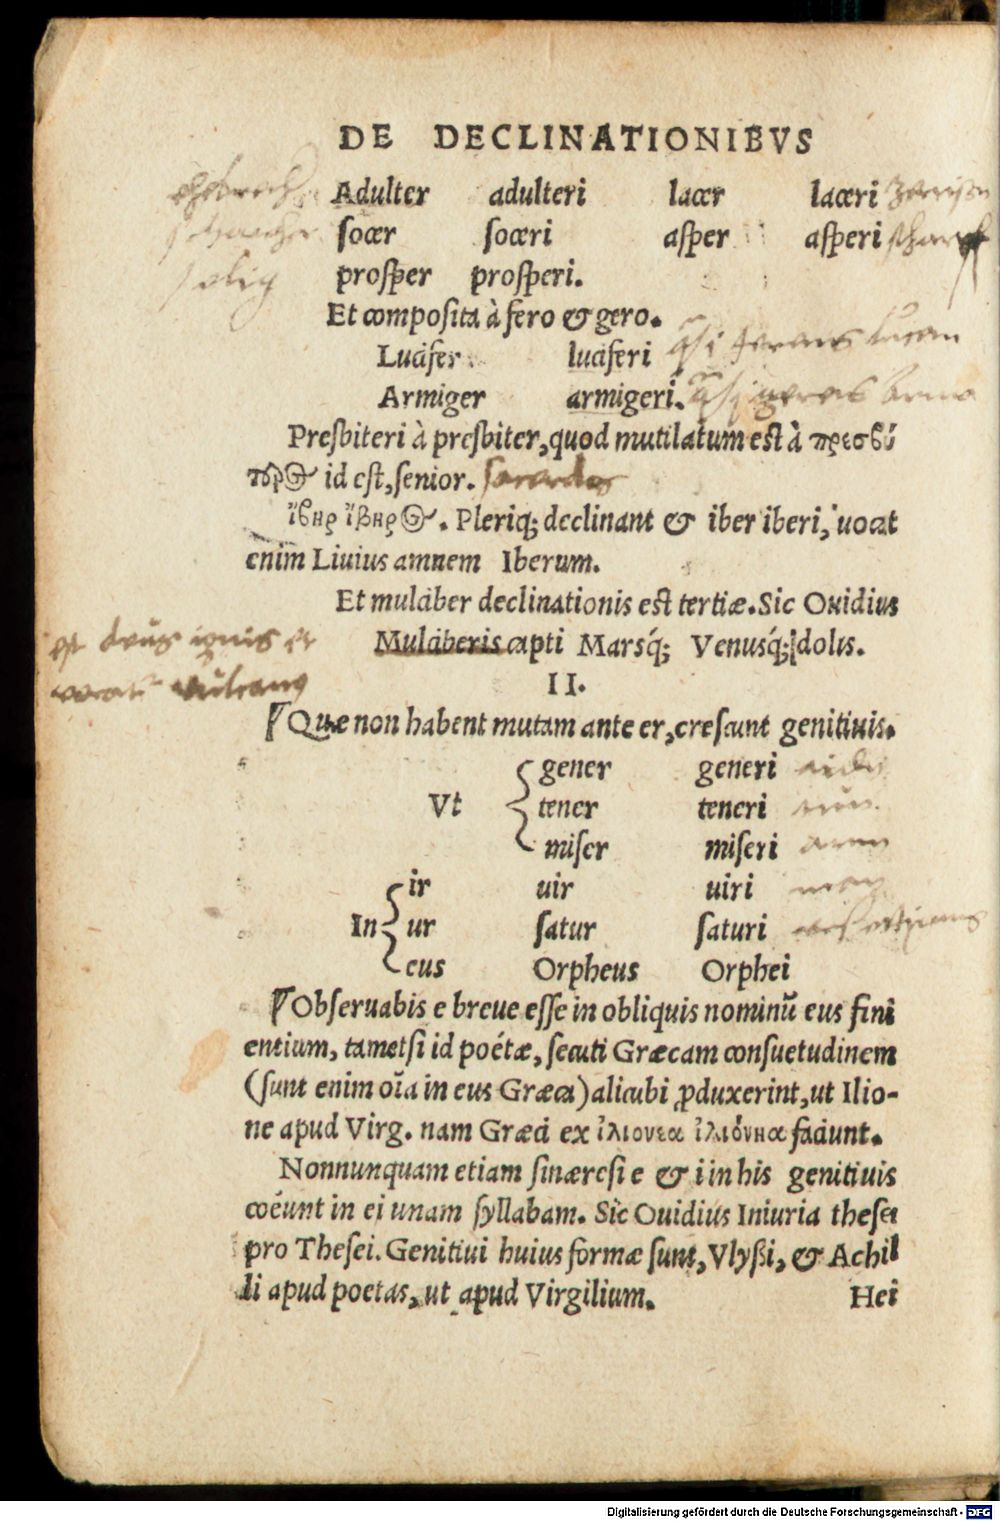 DE DECLINATIONIBVS
Adulter adulteri lacer laceri
ſocer ſoceri aſper aſperi
proſper proſperi.
Et compoſita à fero & gero.
Lucifer luciferi
Armiger armigeri.
Preſbiteri à preſbiter, quod mutilatum eſt à πρεσβύ
τερος id eſt, ſenior.
ἴβηρ ἴβηρος. Pleriq; declinant & iber iberi, uocat
enim Liuius amnem Iberum.
Et mulciber declinationis eſt tertiæ. Sic Ouidius
est deus ignis et
Mulciberis capti Marsq́; Venusq́; dolis.
vulcanus
II.
Quæ non habent mutam ante er, creſcunt genitiuis.
gener generi
Vt tener teneri
miſer miſeri
ir uir uiri
In ur ſatur ſaturi
eus Orpheus Orphei
Obſeruabis e breue eſſe in obliquis nominũ eus fini
entium, tametſi id poétæ, ſecuti Græcam conſuetudinem
(ſunt enim oĩa in eus Græca) alicubi ꝓduxerint, ut Ilio-
ne apud Virg. nam Græci ex ἰλιονεα ἰλιόνηα faciunt.
Nonnunquam etiam ſinæreſi e & i in his genitiuis
coéunt in ei unam ſyllabam. Sic Ouidius Iniuria theſei
pro Theſei. Genitiui huius formæ ſunt, Vlyßi, & Achil
li apud poetas, ut apud Virgilium. Hei
Digitalisierung gefördert durch die Deutsche Forschungsgemeinschaft - DFG